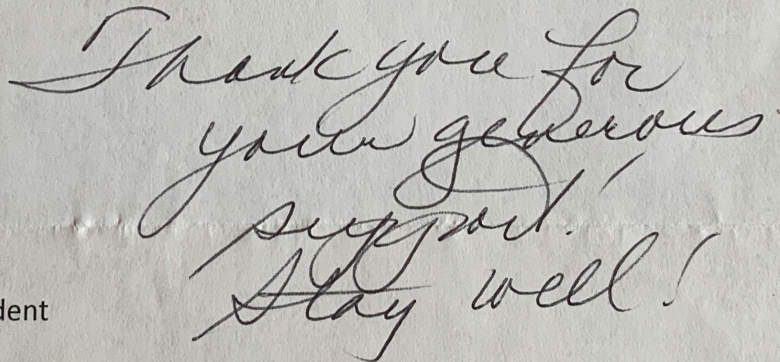 Thank you for
your generous
support!
Stay well!
dent